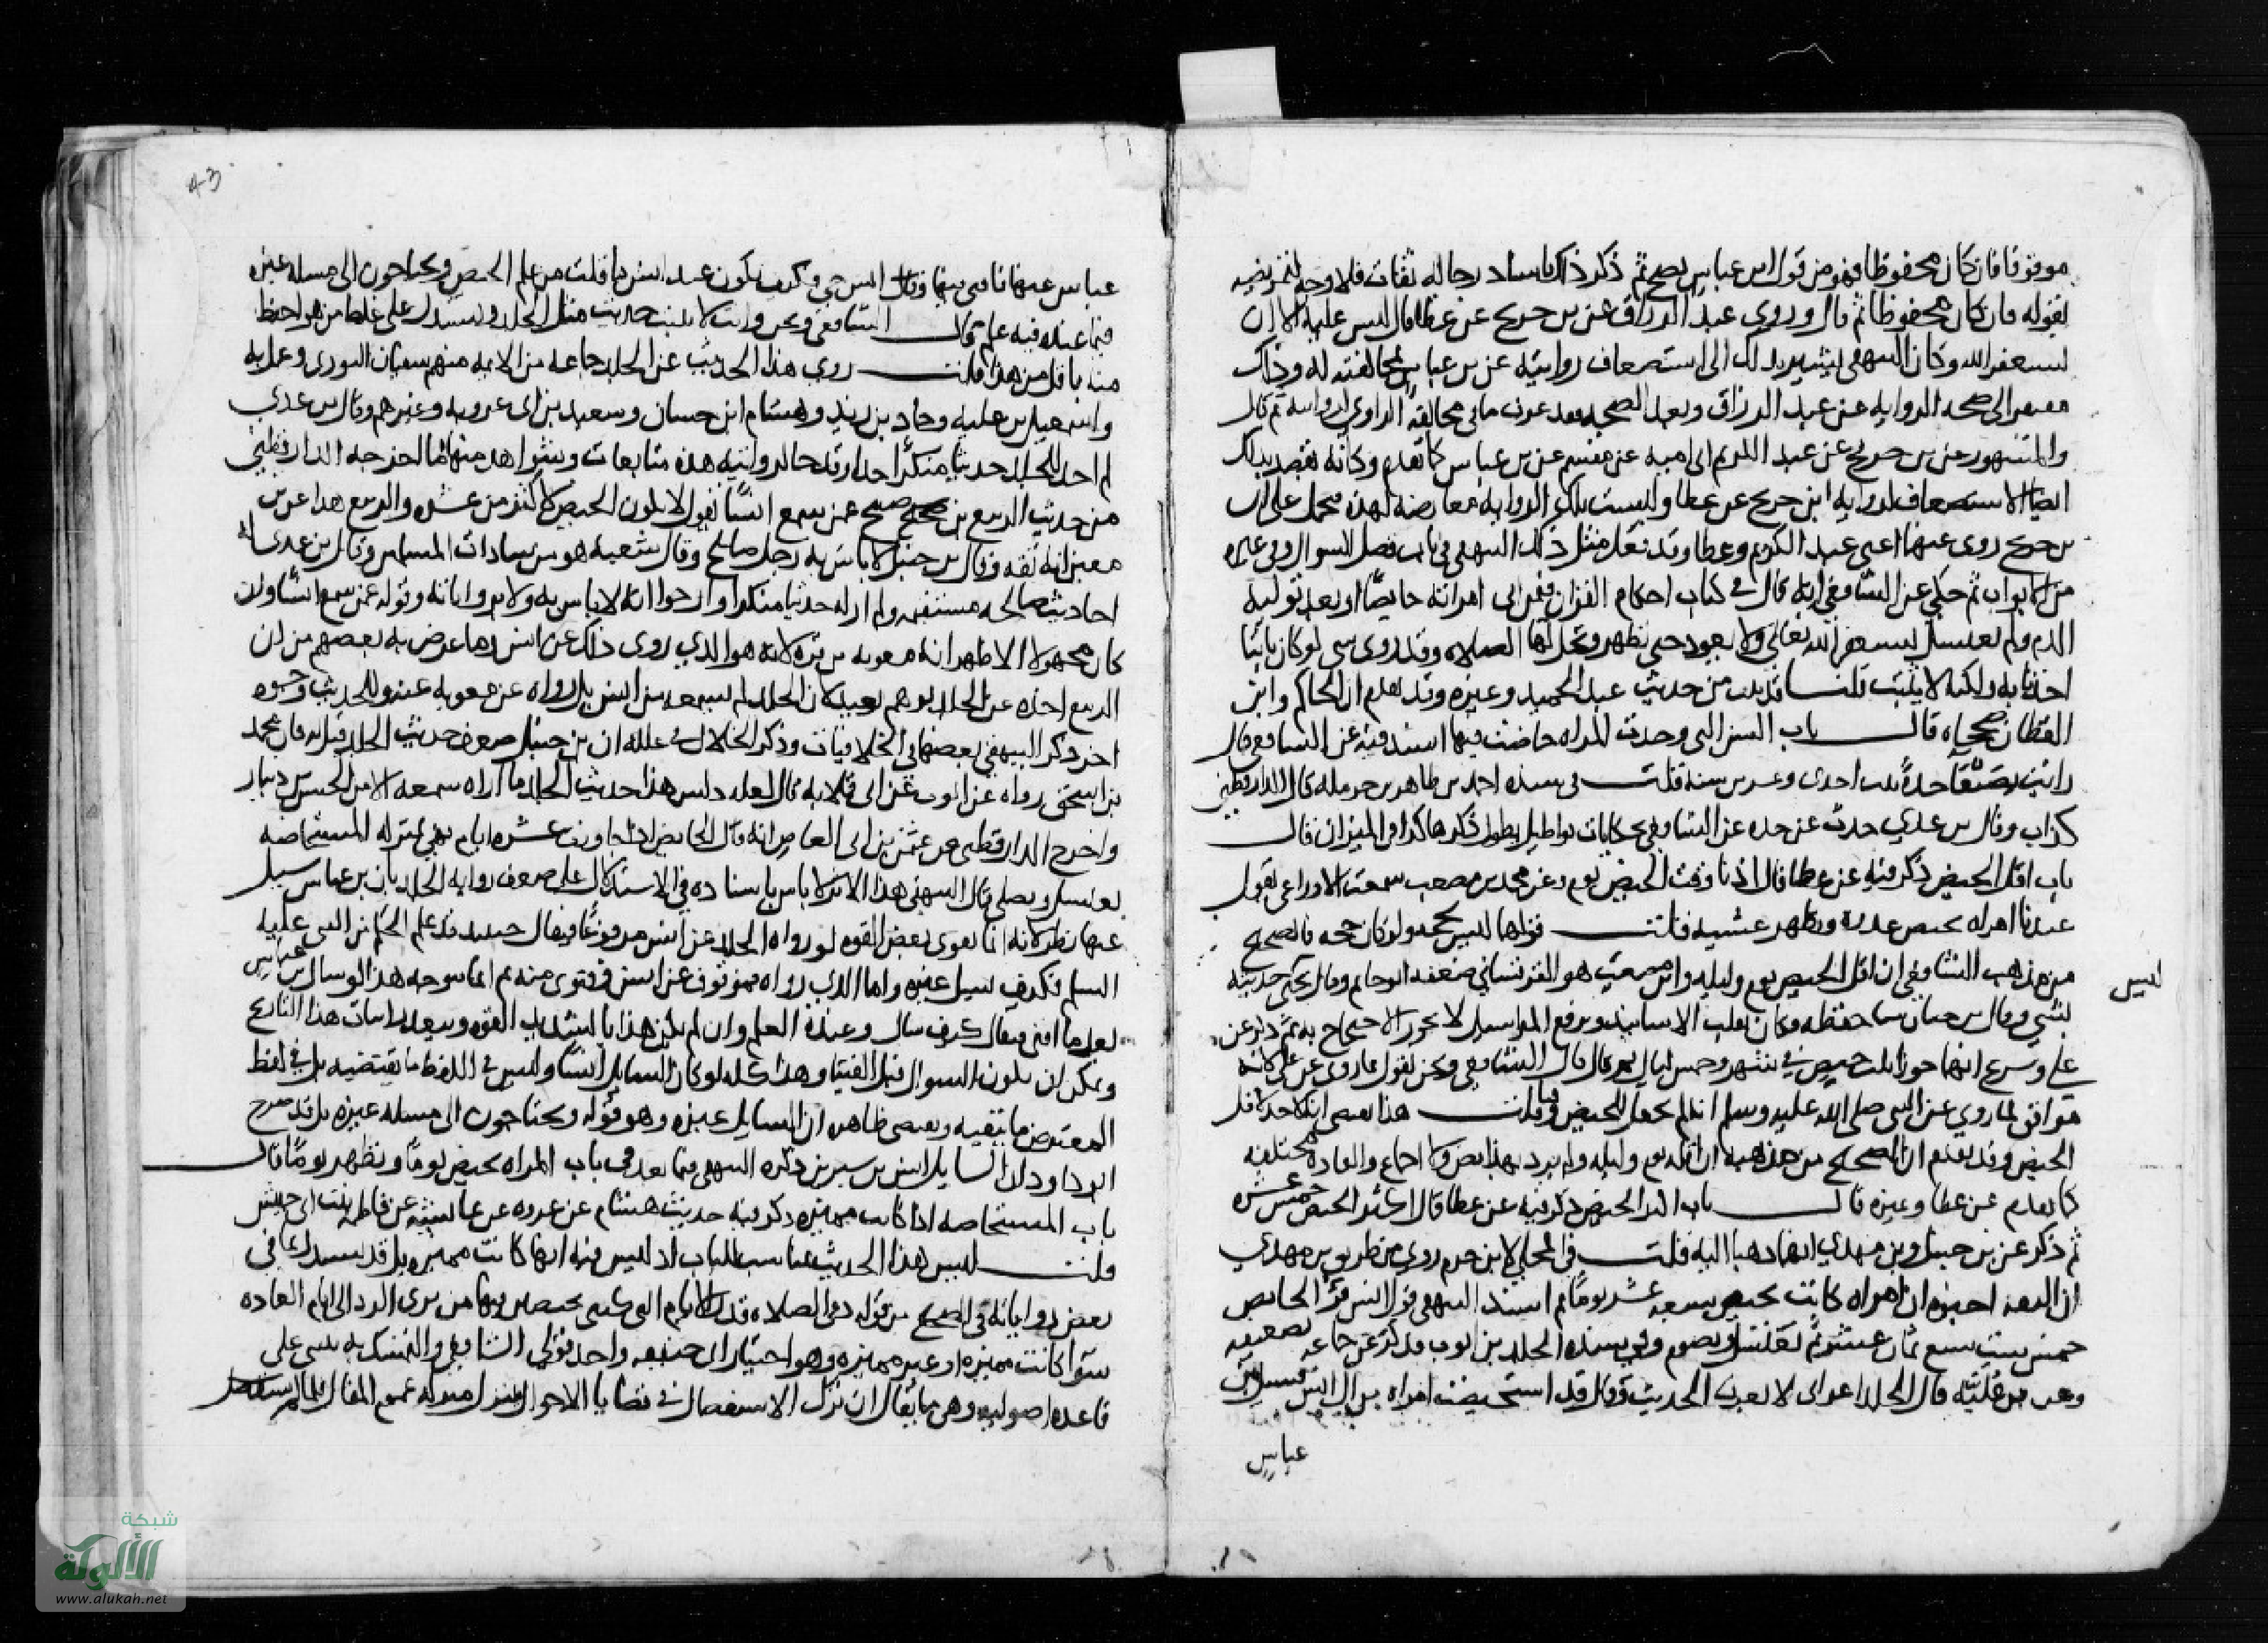 موقوفا فان كان محفوظا فهو من قول ابن عباس يصح ثم ذكر ذلك باسناد رجاله ثقات فلا وجه لتمريضه
بقوله فان كان محفوظا ثم قال وروى عبد الرزاق عن بن جريج عن عطا قال ليس عليه الا ان
يستغفر الله وكان البيهقى يشير بذلك الى استضعاف روايته عن بن عباس لمخالفته له وذلك
الى صحه الروايه عن عبد الرزاق وبعد الصحه فقد عرف ما فى مخالفة الراوى لروايته ثم قال
والمشهور عن بن جريج عن عبد الكريم ابى اميه عن مقسم عن بن عباس كما تقدم وكانه يقصد بذلك
ايضا الاستضعاف لروايه ابن جريج عن عطا وليست تلك الروايه معارضة لهذه محمل على ان
بن جريج روى عنهما اعنى عبد الكريم وعطا وقد فعل مثل ذلك البيهقى فى باب فضل السواك وفى غيره
من الابواب ثم حكى عن الشافعى انه قال فى كتاب احكام القران فيمن اتى امراته حايضا او بعد توليه
الدم ولم تغتسل يستغفر الله تعالى ولا يعود حتى تطهر وتحل لها الصلاه وقد روى شى لو كان ثابتا
اخذنا به ولكنه لا يثبت قلت قد ثبت من حديث عبد الحميد وغيره وقد تقدم ان الحاكم وابن
القطان صححاه قال باب السن التى وجدت المراه حاضت فيها اسند فيه عن الشافعى قال
رايت بصنعا جدة بنت احدى وعشرين سنه قلت فى سنده احمد بن طاهر بن حرمله قال الدارقطنى
كذاب وقال بن عدى حدث عن جده عن الشافعى بحكايات بواطيل يطول ذكرها كذا فى الميزان قال
باب اقل الحيض ذكر فيه عن عطا قال ادنا وقت الحيض يوم وعن محمد بن مصعب سمعت الاوزاعى يقول
عندنا امراه تحيض غدوة وتطهر عشيه قلت قولها ليس بحجه ولو كان حجه فالصحيح
من مذهب الشافعى ان اقل الحيض يوم وليله وابن مصعب هو القرقسانى ضعفه ابو حاتم وقال يحيى حديثه
ليس
بشى وقال بن حبان سا حفظه وكان يقلب الاسانيد ويرفع المراسيل لا يجوز الاحتجاج به ثم ذكر عن
على وشريح انهما جوزا ثلث حيض فى شهر وخمس ليال ثم قال قال الشافعى ونحن نقول بما روى عن على لانه
موافق لما روى عن النبى صلى الله عليه وسلم انه لم يجعل للحيض وقتا قلت هذا يقتضى انه لا حد لاقل
الحيض وقد تقدم ان الصحيح من مذهبه ان اقله يوم وليله ولم يرد بهذا نص ولا اجماع والعادة مختلفه
كما تقدم عن عطا وغيره قال باب اكثر الحيض ذكر فيه عن عطا قال اكثر الحيض خمس عشره
ثم ذكر عن بن حنبل وبن مهدى انهما ذهبا اليه قلت فى المحلى لابن حزم روى من طريق بن مهدى
ان الثقه اخبره ان امراه كانت تحيض سبعه عشر يوما ثم اسند البيهقى قول انس قرؤ الحايض
خمس ست سبع ثمان عشر ثم تغتسل وتصوم وفى سنده الجلد بن ايوب فذكر عن جماعه تضعيفه
وعن بن عليه قال الجلد اعرابى لا يعرف الحديث وقال قد استحيضت امراه من ال انس فسيل ابن
عباس
43
عباس عنها فافتى فيها وانس حى وكيف يكون عند انس ما قلت من علم الحيض ويحتاجون الى مسله غيره
فيما عنده فيه علم قال الشافعى ونحن وانت لا نثبت حديث مثل الجلد ونستدل على غلط من هو احفظ
منه باقل من هذا قلت روى هذا الحديث عن الجلد جماعه من الايمه منهم سفيان الثورى وعمل به
واسمعيل بن عليه وحماد بن زيد وهشام ابن حسان وسعيد بن ابى عروبه وغيرهم وقال بن عدى
لم اجد للجلد حديثا منكرا جدا وقد جا لروايته هذه متابعات وشواهد منها ما اخرجه الدارقطنى
من حديث الربيع بن صبيح عمن سمع انسا يقول لا يكون الحيض اكثر من عشره والربيع هذا عن بن
معين انه ثقه وقال بن حنبل لا باس به رجل صالح وقال شعبة هو من سادات المسلمين وقال بن عدى له
احاديث صالحه مستقيمه ولم ار له حديثا منكرا وارجوا انه لا باس به ولا برواياته وقوله عمن سمع انسا وان
كان مجهولا الا ظهر انه معويه بن قره لانه هو الذى روى ذلك عن انس وما عرض به بعضهم من ان
الربيع اخذه عن الجلد توهم بعيد لان الجلد لم يسمعه من انس بل رواه عن معويه عنه وللحديث وجوه
اخر ذكر البيهقى بعضها فى الخلافيات وذكر الخلال فى علله ان بن حنبل ضعف حديث الجلد قيل له فان محمد
بن اسحق رواه عن ايوب عن ابى قلابه قال لعله دلس هذا حديث الجلد ما اراه سمعه الا من الحسن بن دينار
واخرج الدارقطنى عن عثمن بن ابى العاص انه قال الحايض اذا جاوزت عشره ايام فهى بمنزله المستحاضه
تغتسل وتصلى قال البيهقى هذا الاثر لا باس باسناده فى الاستدلال على ضعف روايه الجلد بان بن عباس سيل
عنها نظر لانه انما يقوى بعض القوه لو رواه الجلد عن انس مرفوعا فيقال حينيد قد علم الحكم من النبى عليه
السلم فكيف يسيل غيره واما الذى رواه موقوف عن انس وفتوى منه ثم انما توجه هذا لو سال بن عباس
بعد ما افتى فيقال كيف سال وعنده العلم وان لم يكن هذا بالشديد القوه ويبعد اثبات هذا التاريخ
ويمكن ان يكون السوال قبل الفتيا وهذا كله لو كان السايل انسا وليس فى اللفظ ما يقتضيه بل فى لفظ
المعترض ما ينفيه ويقتضى ظاهره ان السايل غيره وهو قوله ويحتاجون الى مسله غيره بل قد صرح
ابو داود ان السايل انس بن سيرين ذكره البيهقى فيما بعد فى باب المراه تحيض يوما وتطهر يوما قال
باب المستحاضه اذا كانت مميزه ذكر فيه حديث هشام عن عروه عن عايشه عن فاطمه بنت ابى حبيش
قلت ليس هذا الحديث مناسب للباب اذ ليس فيه انها كانت مميزه بل قد يستدل بما فى
بعض رواياته فى الصحيح من قوله دعى الصلاه قدر الايام التى كنت تحيضين فيها من يرى الرد الى ايام العاده
سوا كانت مميزه او غير مميزه وهو اختيار ابى حنيفه واحد قولى الشافعى والتمسك به ينبنى على
قاعده اصوليه وهى ما يقال ان ترك الاستفصال فى قضايا الاحوال ينزل منزله عموم المقال
شبكة
الألوكة
www.alukah.net